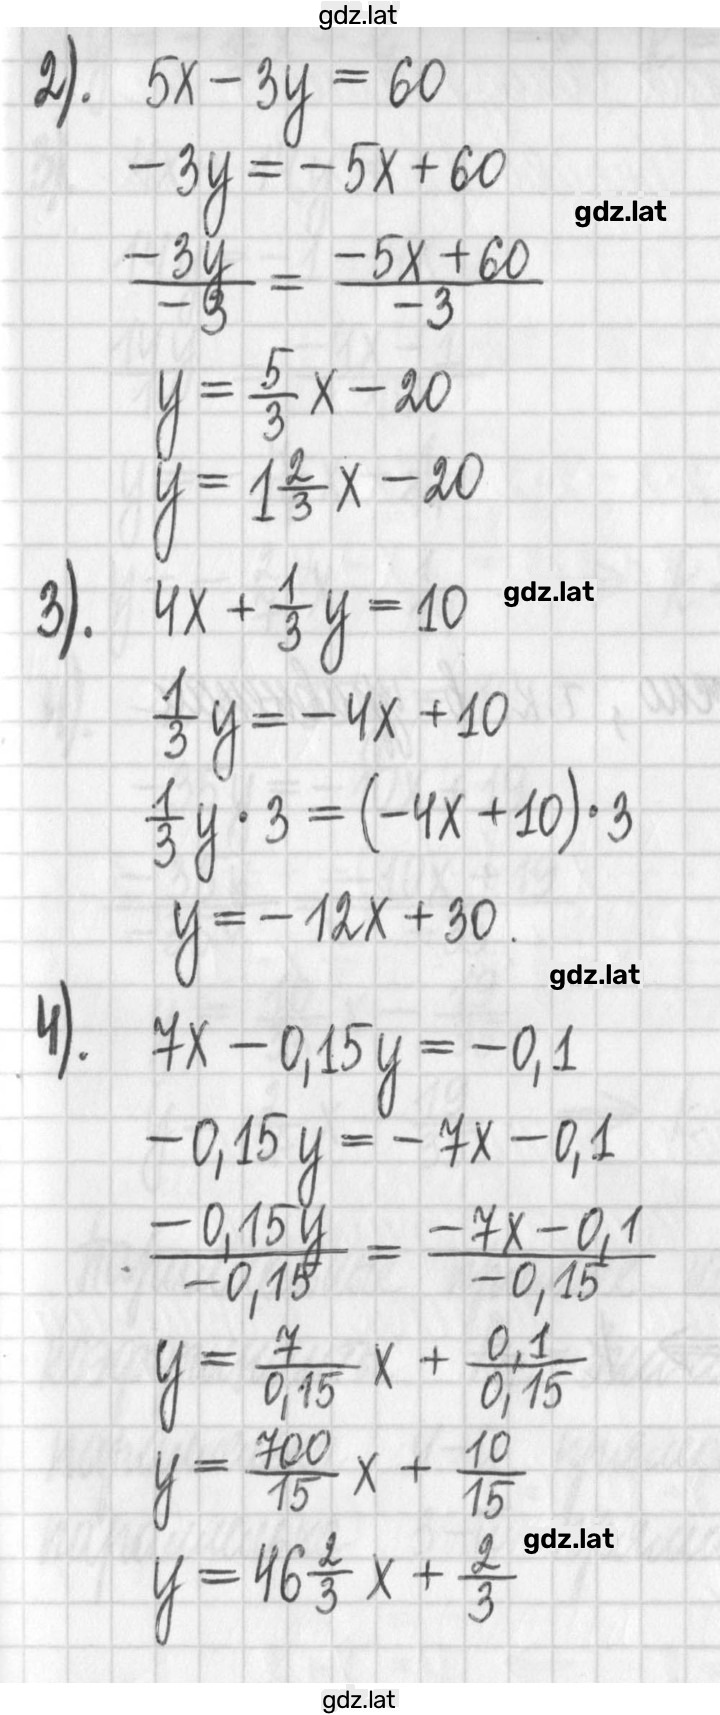 gdz.lat
2). 5x - 3y = 60
-3y = -5x + 60
gdz.lat
-3y/-3 = -5x + 60/-3
y = 5/3 x - 20
y = 1 2/3 x - 20
3). 4x + 1/3 y = 10 gdz.lat
1/3 y = -4x + 10
1/3 y · 3 = (-4x + 10) · 3
y = -12x + 30.
gdz.lat
4). 7x - 0,15y = -0,1
-0,15y = -7x - 0,1
-0,15y/-0,15 = -7x - 0,1/-0,15
y = 7/0,15 x + 0,1/0,15
y = 700/15 x + 10/15
gdz.lat
y = 46 2/3 x + 2/3
gdz.lat